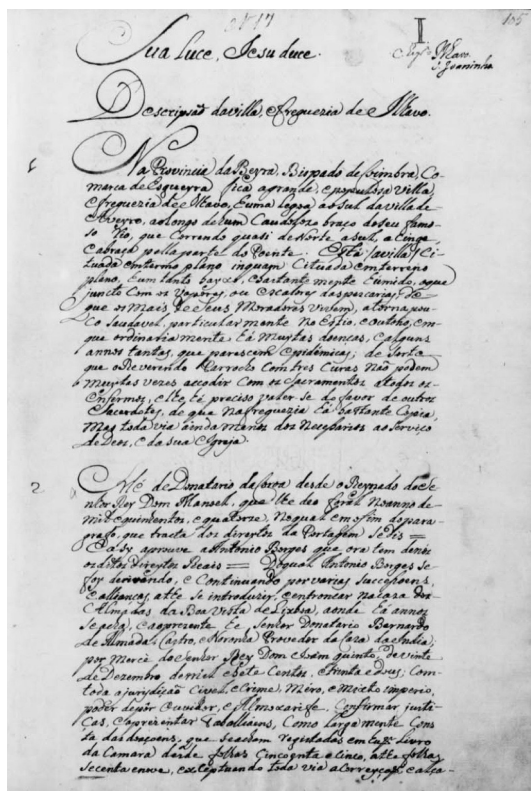 105
I
Sua Luce, Jesu duce.
Ilhavo
Descripsaõ da villa, e freguezia de Ilhavo.
1
Na Provincia da Beyra, Bispado de Coimbra, Co-
marca de Esgueyra fica a grande, e populosa Villa,
e freguezia de Ilhavo, huma legoa ao sul da villa de
Aveyro, ao longo de hum Caudolozo braço do seu famo-
so Rio, que correndo quasi de Norte a sul, a cinge,
e abraça pella parte do Poente. Está (a villa) Ci-
tuada em terreno plano
plano, hum tanto bayxo, e bastante mente humido, o que
juncto com os Vapores, ou das pescarias, de
que os mais de seus Moradores vivem, a torna pou-
co saudavel, particular mente no Estio, e Outono, em-
que ordinaria mente há muytas doenças, e alguns
annos tantas, que parescem Epidemicas; de sorte
que o Reverendo Parrocho com tres Curas não podem
muytas vezes accodir com os Sacramentos a todos os
Enfermos, e lhe hé preciso valer se do favor de outros
Sacerdotes, de que na freguezia há bastante Copia,
Mas toda via ainda menos dos Necessarios ao Serviço
de Deos, e da sua Igreja.
2
Hé de Donatario da Coroa desde o Reynado do Se-
nhor Rey Dom Manoel, que lhe deo foral no anno de
mil e quinhentos, e quatorze, no qual em o fim do para-
grafo, que tracta dos direytos da Portagem se diz =
a Antonio Borges que ora tem
os ditos Direytos Reais = Do qual Antonio Borges se
foy derivando, e Continuando por varias successoens,
e allianças, athe se introduzir, e entroncar na caza dos
Almadas da Boa Vista de Lixboa, aonde há annos
se possue, e ao prezente hé Senhor Donatario Bernardo
de Almada, Castro, e Noronha Provedor da Caza da India;
por Mercê do Senhor Rey Dom Joam quinto, de vinte
de Dezembro de mil e sete Centos, e trinta e dous; Com
toda a jurisdição Civel, e Crime, Mero, e Mixto imperio,
poder depôr Ouvidor, e Almoxarife, Confirmar justi-
ças, e aprezentar Taballiaens, Como larga mente Cons-
ta das doaçoens, que se acham registadas em hum Livro
da Camara desde folhas Cincoenta e Cinco, athe folhas
Secenta e nove, exceptuando toda via a Correyção, e alça-